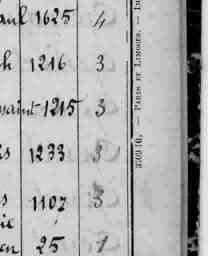 aul 1625 4
h 1216 3
saint 1215 3
s 1233 3
s 1107 3
ie
en 25 1
PARIS ET LIMOGES. —